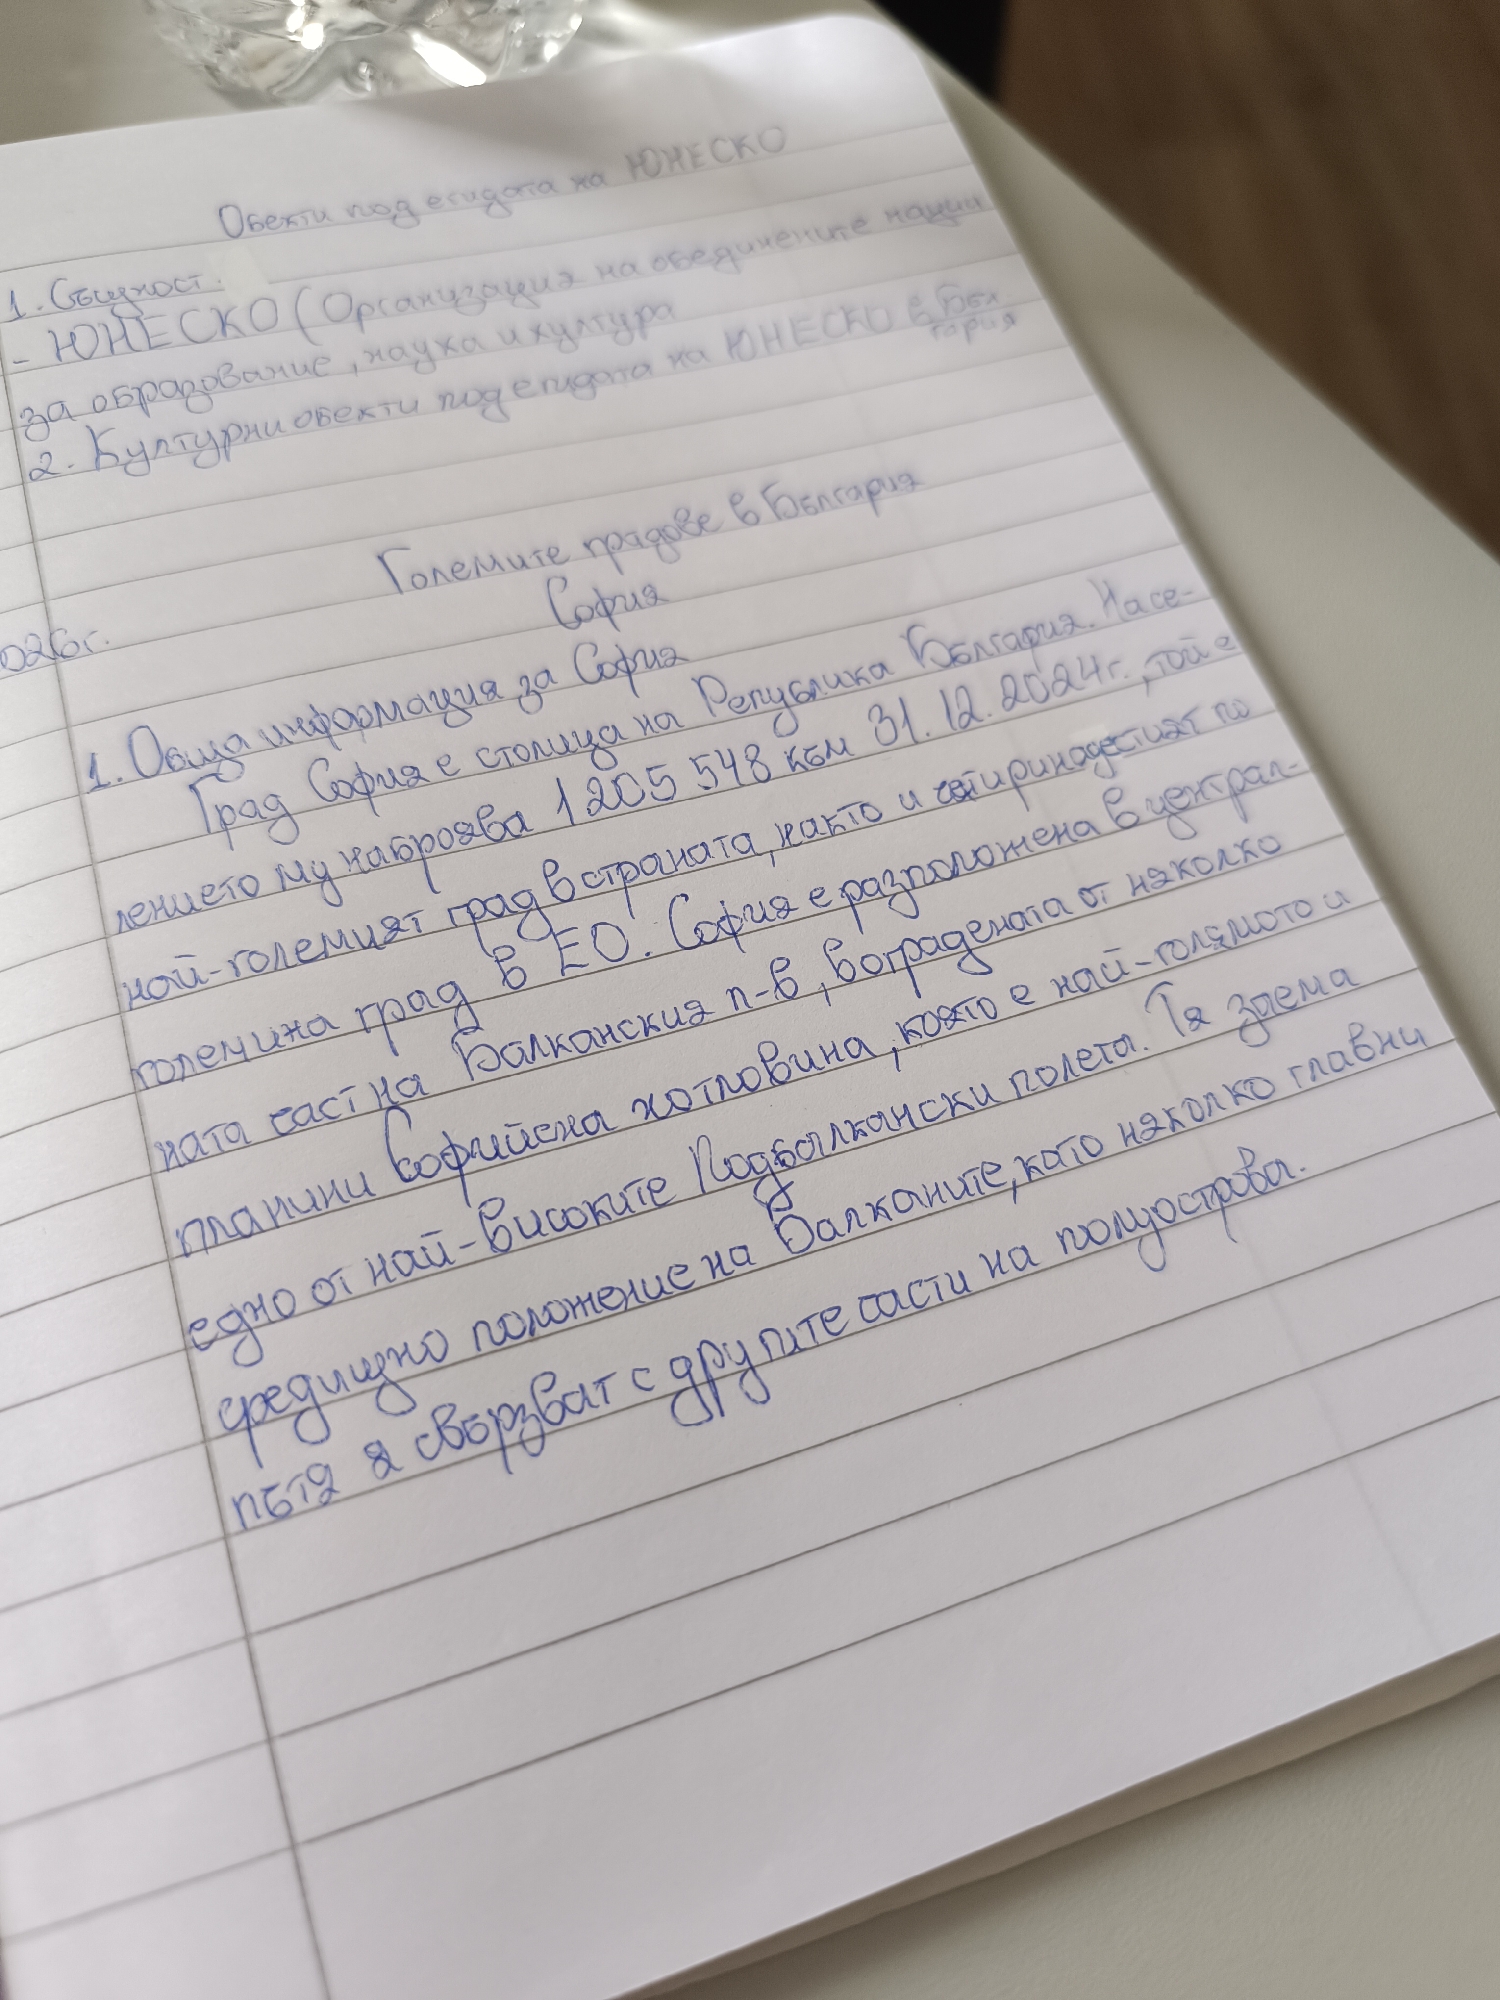 Обекти под егидата на ЮНЕСКО
1. Същност.
- ЮНЕСКО (Организация на обединените нации
за образование, наука и култура
2. Културни обекти под егидата на ЮНЕСКО в Бъл
гария
Големите градове в България
София
026г.
1. Обща информация за София
Град София е столица на Република България. Насе-
лението му наброява 1 205 548 към 31.12.2024г., той е
най-големият град в страната, както и четиринадестият по
големина град в ЕО. София е разположена в централ-
ната част на Балканския п-в, в оградената от няколко
планини Софийска котловина, която е най-голямото и
едно от най-високите Подбалкански полета. Тя заема
средищно положение на Балканите, като няколко главни
пътя я свързват с другите части на полуострова.